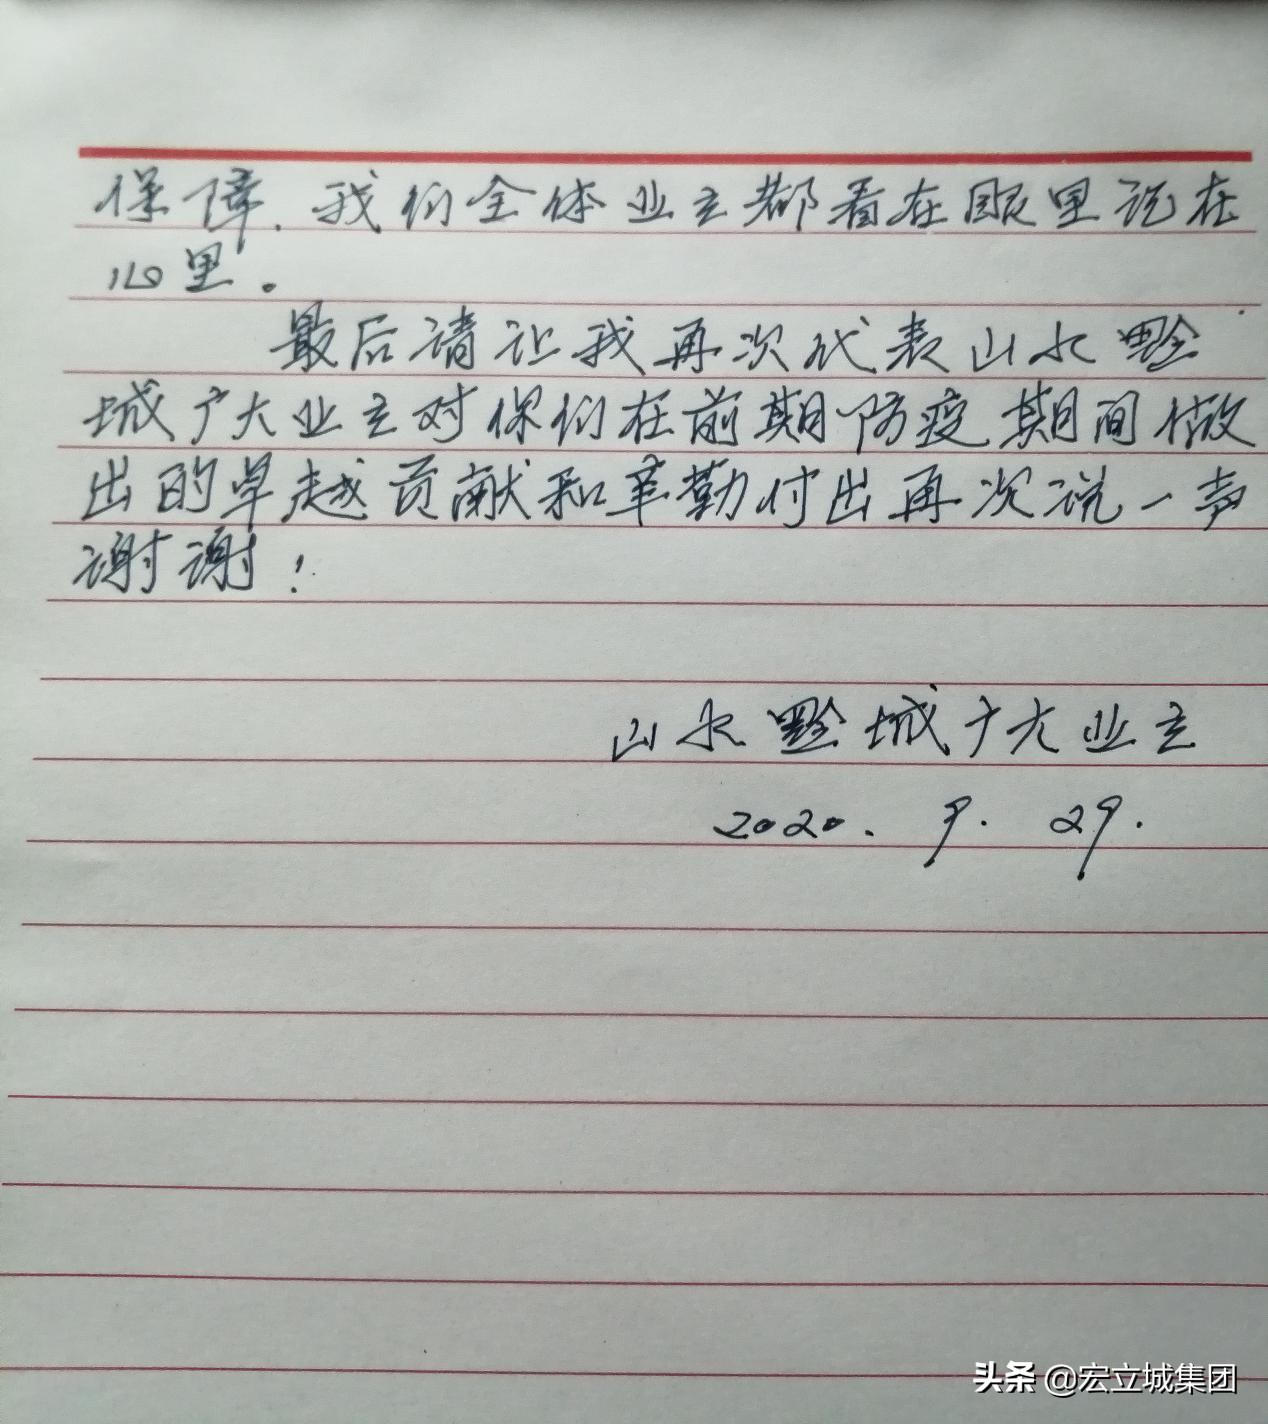 保障.我们全体业主都看在眼里记在
心里。
最后请让我再次代表山水黔
城广大业主对你们在前期防疫期间做
出的卓越贡献和辛勤付出再次说一声
谢谢!
山水黔城广大业主
2020. 9. 29.
头条 @宏立城集团